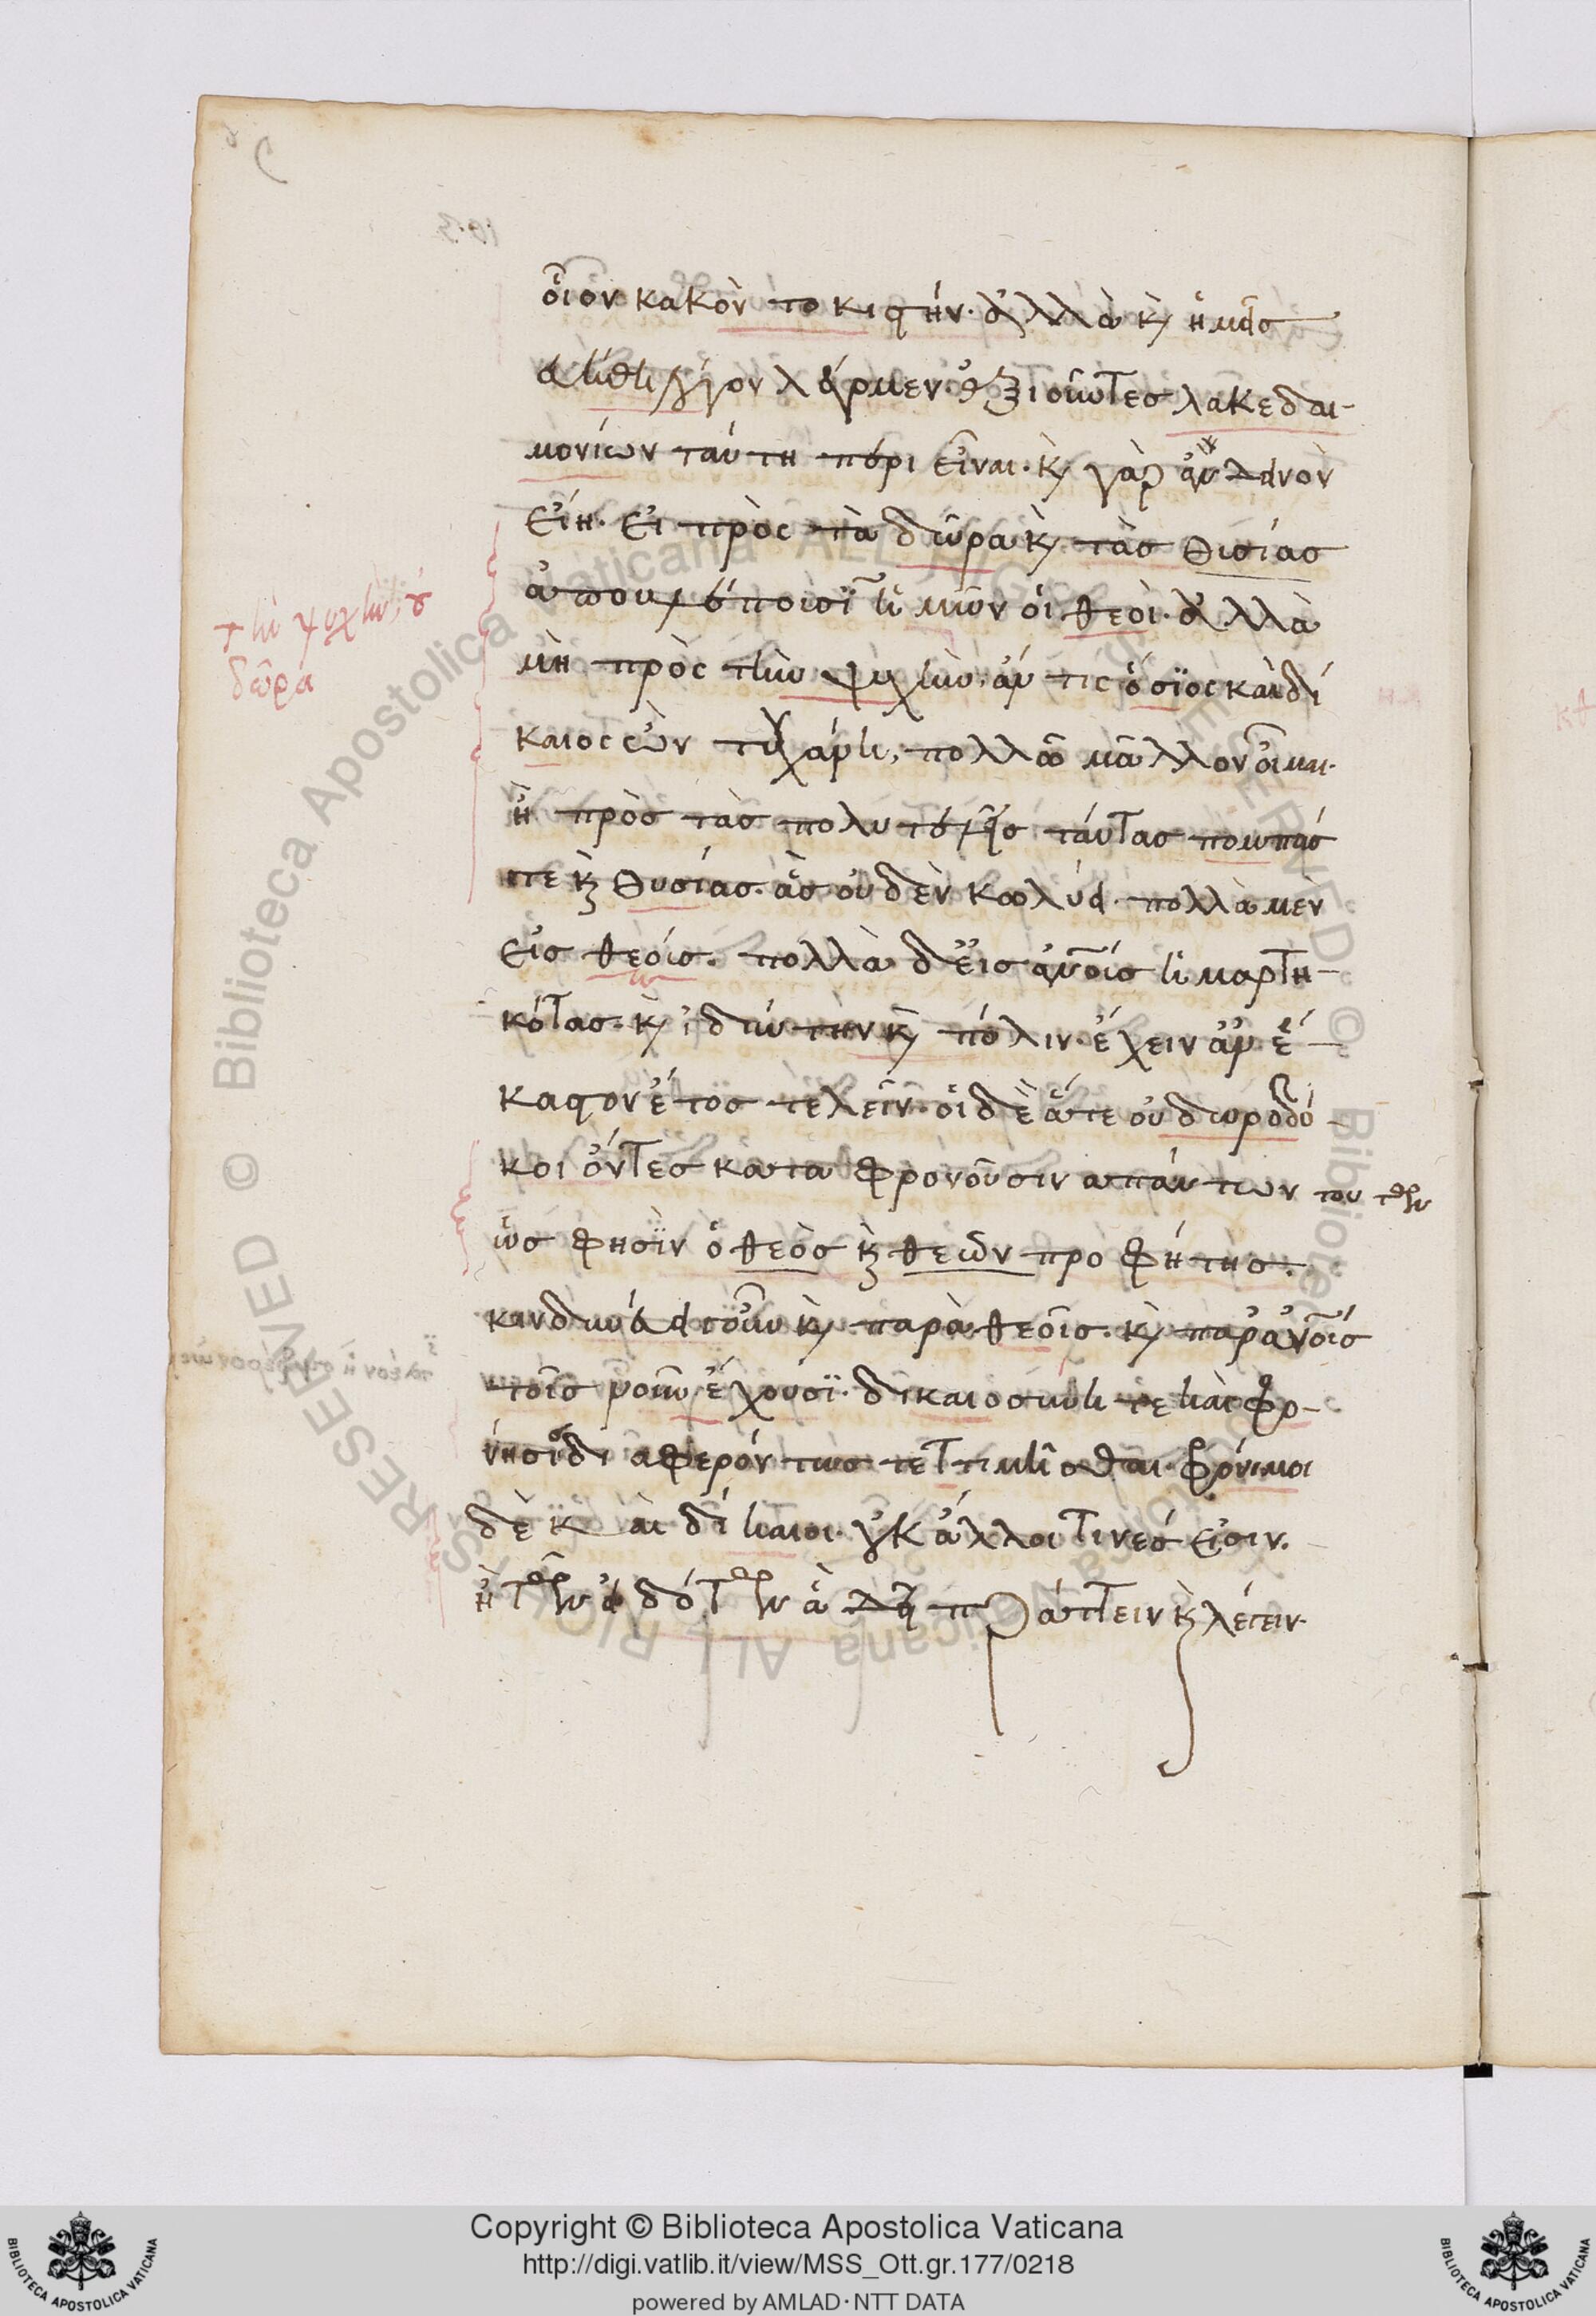 οἷον κακὸν τοκιστήν· ἀλλὰ κ̀ ἡμᾶς
εὐήθη λόγον λέγομεν· ἀξιοῦντες λακεδαι-
μονίων ταύτη περι εῖναι· κ̀ γὰρ ἂν δεινὸν
εἴη· εἰ πρὸς τὰ δῶρα κ̀ τὰς θυσίας
ἀποβλέπουσϊ ἡμῶν οἱ θεοὶ· ἀλλὰ
μὴ πρὸς τὴν ψυχὴν, ἄν τις ὅσϊος καὶ δί
καιος ὢν τυγχάνη, πολλῶ μᾶλλον οἶμαι·
ἢ πρὸς τὰς πολυτελεῖς ταύτας πομπάς
τε κ̀ θυσίας· ἃς οὐδὲν κωλύει· πολλὰ μὲν
εἰς θεούς· πολλὰ δ'εἰς ἀνους ἡμαρτη-
κότας· κ̀ ἰδιώτην κ̀ πόλιν· ἔχειν ἀν' ἕ-
καστον ἔτος τελεῖν· οἱ δὲ ἅτε οὐ δωροδό-
κοι ὄντες καταφρονοῦσιν απάντων τουτων
ὥς φησϊν ὁ θεὸς κ̀ θεῶν προφήτης·
κινδυνεύει γοῦν κ̀ παρὰ θεοῖς· κ̀ παρ' ἀνοις
τοῖς νοῦν ἔχουσϊ· δικαιοσύνη τε καὶ φρο-
νησις διαφερόντως τετιμῆσθαι· φρόνιμοι
δὲ κ αὶ δίκαιοι· οὐκ ἄλλοι τινές εἰσιν·
ἢ τῶν εἰδότων ἃ δεῖ πράττειν κ̀ λέγειν·
τὴν ψυχὴν, οὐ
δῶρα
Copyright © Biblioteca Apostolica Vaticana
http://digi.vatlib.it/view/MSS_Ott.gr.177/0218
powered by AMLAD·NTT DATA
BIBLIOTECA APOSTOLICA VATICANA
BIBLIOTECA APOSTOLICA VATICANA